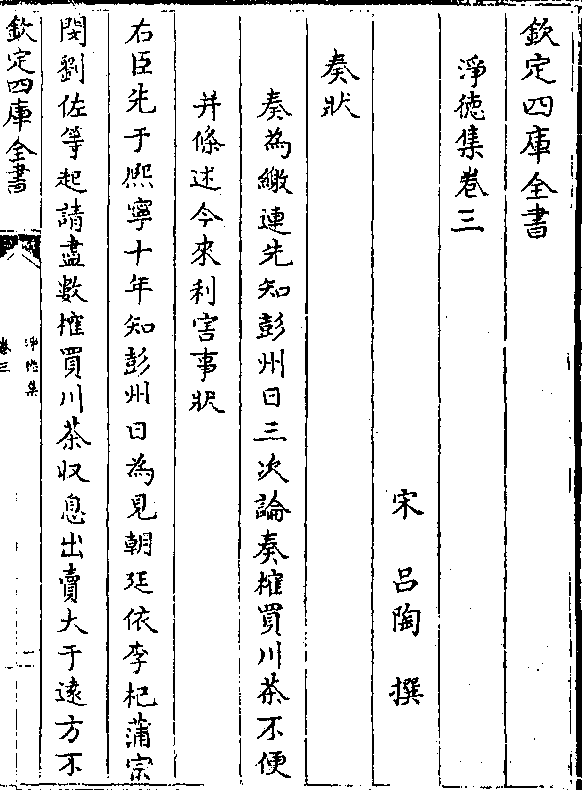 欽定四庫全書
淨徳集卷三
宋 吕陶 撰
奏狀
奏為繳連先知彭州日三次論奏榷買川茶不便
并條述今來利害事狀
右臣先于熙寧十年知彭州日為見朝廷依李杞蒲宗
閔劉佐等起請盡數榷買川茶収息出賣大于遠方不
欽定四庫全書
淨徳集
卷三
一